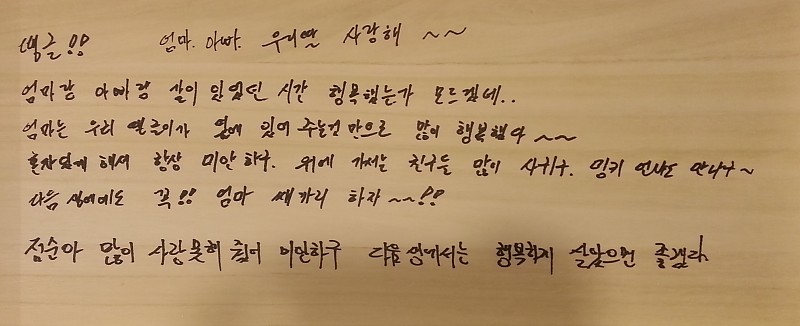 땡글!! 엄마. 아빠. 우리딸 사랑해 ~~
엄마랑 아빠랑 같이 있었던 시간 행복했는가 모르겠네..
엄마는 우리 땡글이가 옆에 있어 주는것 만으로 많이 행복했다 ~~
혼자있게 해서 항상 미안하구. 위에 가서는 친구들 많이 사귀구. 밍키 언니도 만나구~
다음 생에도 꼭!! 엄마 새끼 하자 ~~!!
점순아 많이 사랑못해 줬어 미안하구 다음 생에서는 행복하게 살았으면 좋겠다